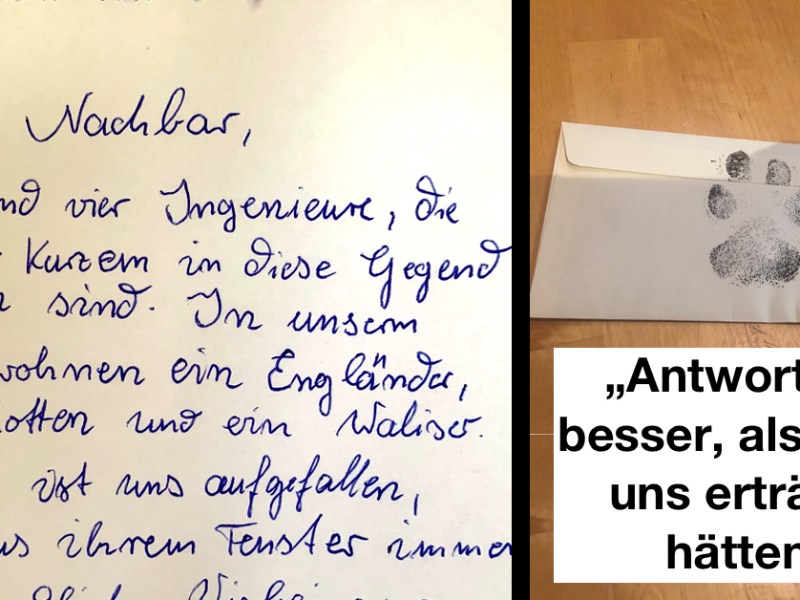 Nachbar,
nd vier Ingenieure, die
Kurzem in diese Gegend
sind. In unserm
wohnen ein Engländer,
otten und ein Waliser.
ist uns aufgefallen,
us ihrem Fenster immer
„Antwort
besser, als
uns erträ
hätten